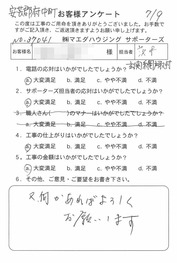 安芸郡府中町
7/9
お客様アンケート
この度は工事のご用命を頂きありがとうございました。お手数で
すがご記入頂き、ご返送頂きますようお願い申し上げます。
㈱マエダハウジング サポーターズ
様
担当者
1. 電話の対応はいかがでしたでしょうか?
a. 大変満足 b. 満足 c. やや不満 d. 不満
2. サポーターズ担当者の対応はいかがでしたでしょうか?
a. 大変満足 b. 満足 c. やや不満 d. 不満
3. 職人さん( )のマナーはいかがでしたでしょうか?
a. 大変満足 b. 満足 c. やや不満 d. 不満
4. 工事の仕上がりはいかがでしたでしょうか?
a. 大変満足 b. 満足 c. やや不満 d. 不満
5. 工事の金額はいかがでしたでしょうか?
a. 大変満足 b. 満足 c. やや不満 d. 不満
6. その他、ご意見・ご要望をお書き下さい。
又何かあればよろしく
お願いします